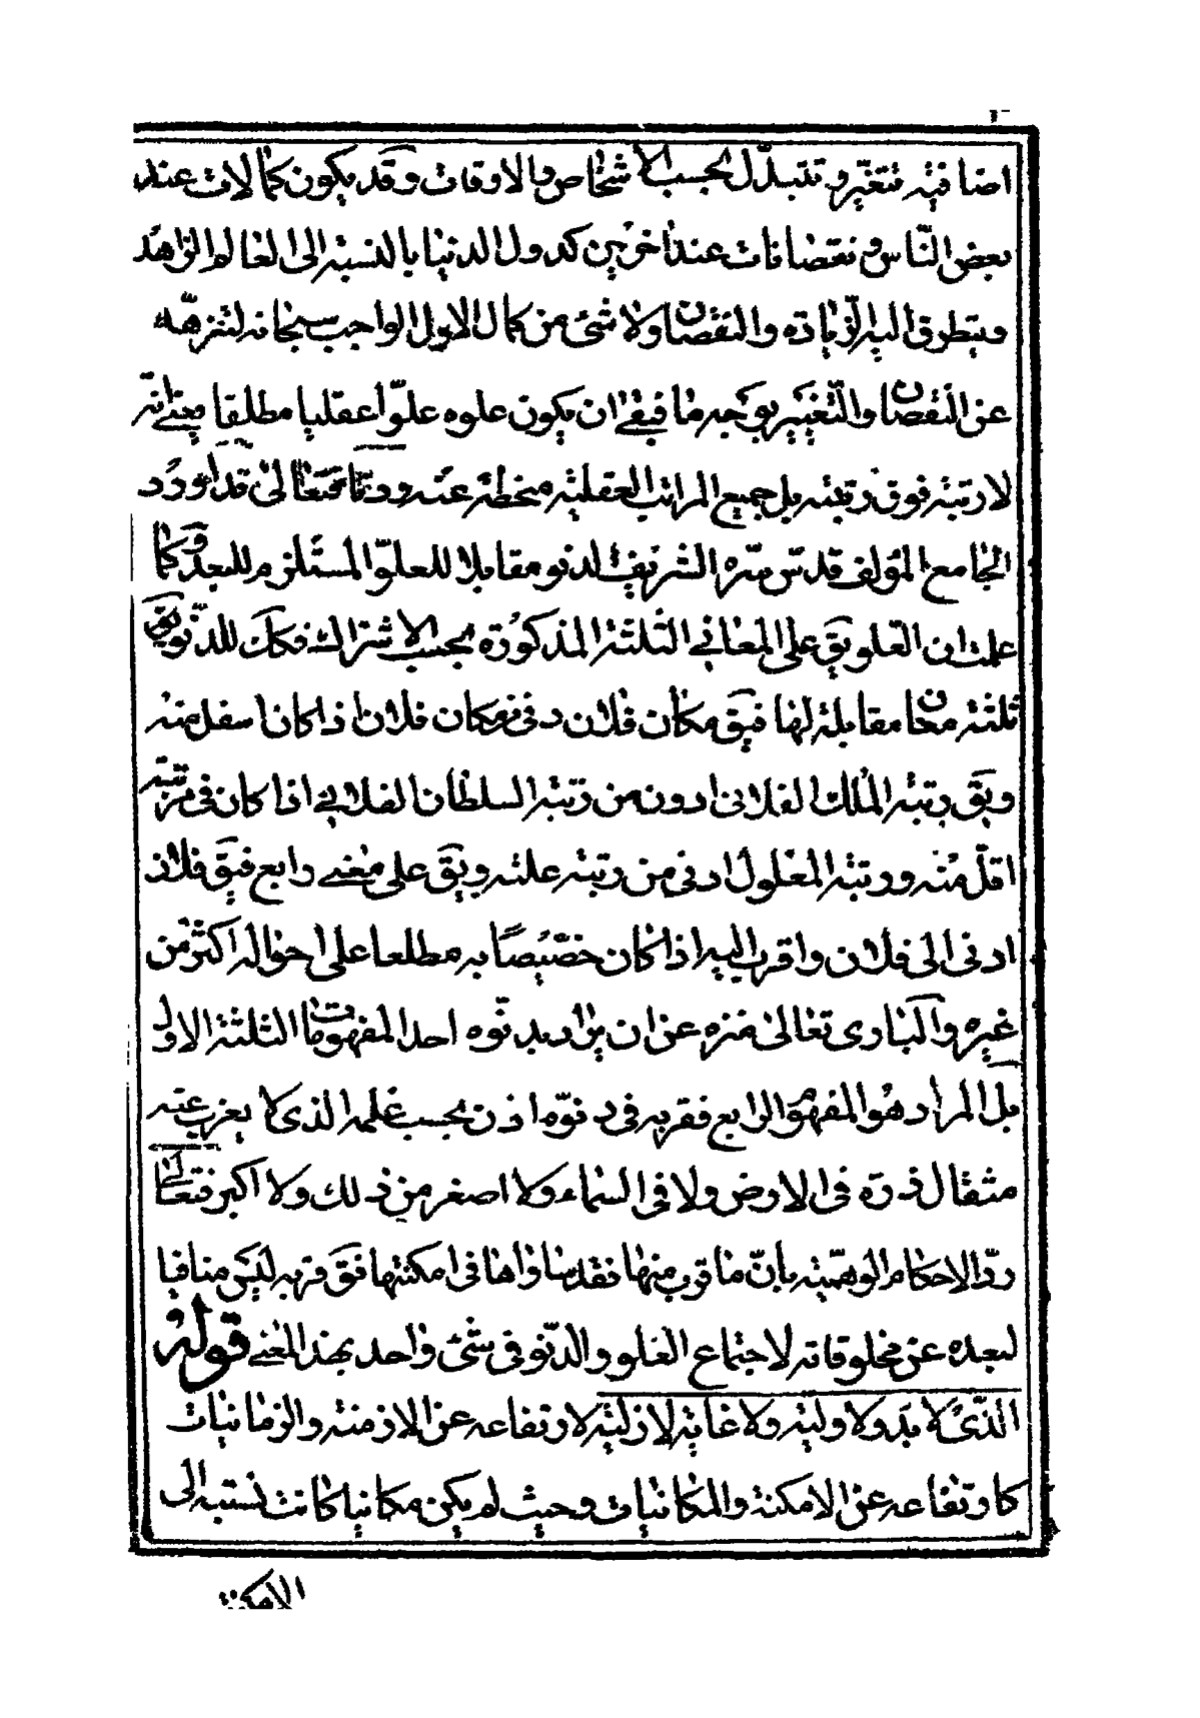 اضافية تتغير وتتبدل بحسب الاشخاص والاوقات وقد يكون كمالات عند
بعض الناس ونقصانات عند اخرين كدول الدنيا بالنسبة الى العالم الزاهد
ويتطرق اليه الزيادة والنقصان ولا شئ من كمال الاول الواجب سبحانه لتنزهه
عن النقصان والتغيير بوجه ما فبقى ان يكون علوه علوا عقليا مطلقا بمعنى انه
لا رتبة فوق رتبته بل جميع المراتب العقلية منحطة عنه ودنا فتعالى قد اورد
الجامع المؤلف قدس سره الشريف لدنو مقابلا للعلو المستلزم للبعد وكما
علمت ان العلو يق على المعاني الثلثة المذكورة بحسب الاشتراك فكك للدنو يق
ثلثة معان مقابلة لها فيق مكان فلان دنى من مكان فلان اذا كان اسفل منه
ويق رتبة الملك الفلانى ادون من رتبة السلطان الفلاني اذا كان فى مرتبة
اقل منه ورتبة المعلول ادنى من رتبة علته ويق على معنى رابع فيق فلان
ادنى الى فلان واقرب اليه اذا كان خصيصا به مطلعا على احواله اكثر من
غيره والبارى تعالى منزه عن ان يراد بدنوه احد المفهومات الثلثة الاول
بل المراد هو المفهوم الرابع فقربه فى دنوه اذن بحسب علمه الذى لا يعزب عنه
مثقال ذرة فى الارض ولا فى السماء ولا اصغر من ذلك ولا اكبر فتعالى
رد الاحكام الوهمية بان ما قرب منها فقد ساواها فى امكنتها فق قربه ليس منافيا
لبعده عن مخلوقاته لاجتماع العلو والدنو فى شئ واحد بهذا المعنى قوله
الذى لا بدو لاوليته ولا غاية لازليته لارتفاعه عن الازمنة والزمانيات
كارتفاعه عن الامكنة والمكانيات وحيث لم يكن مكانيا كانت نسبته الى
الامكنة